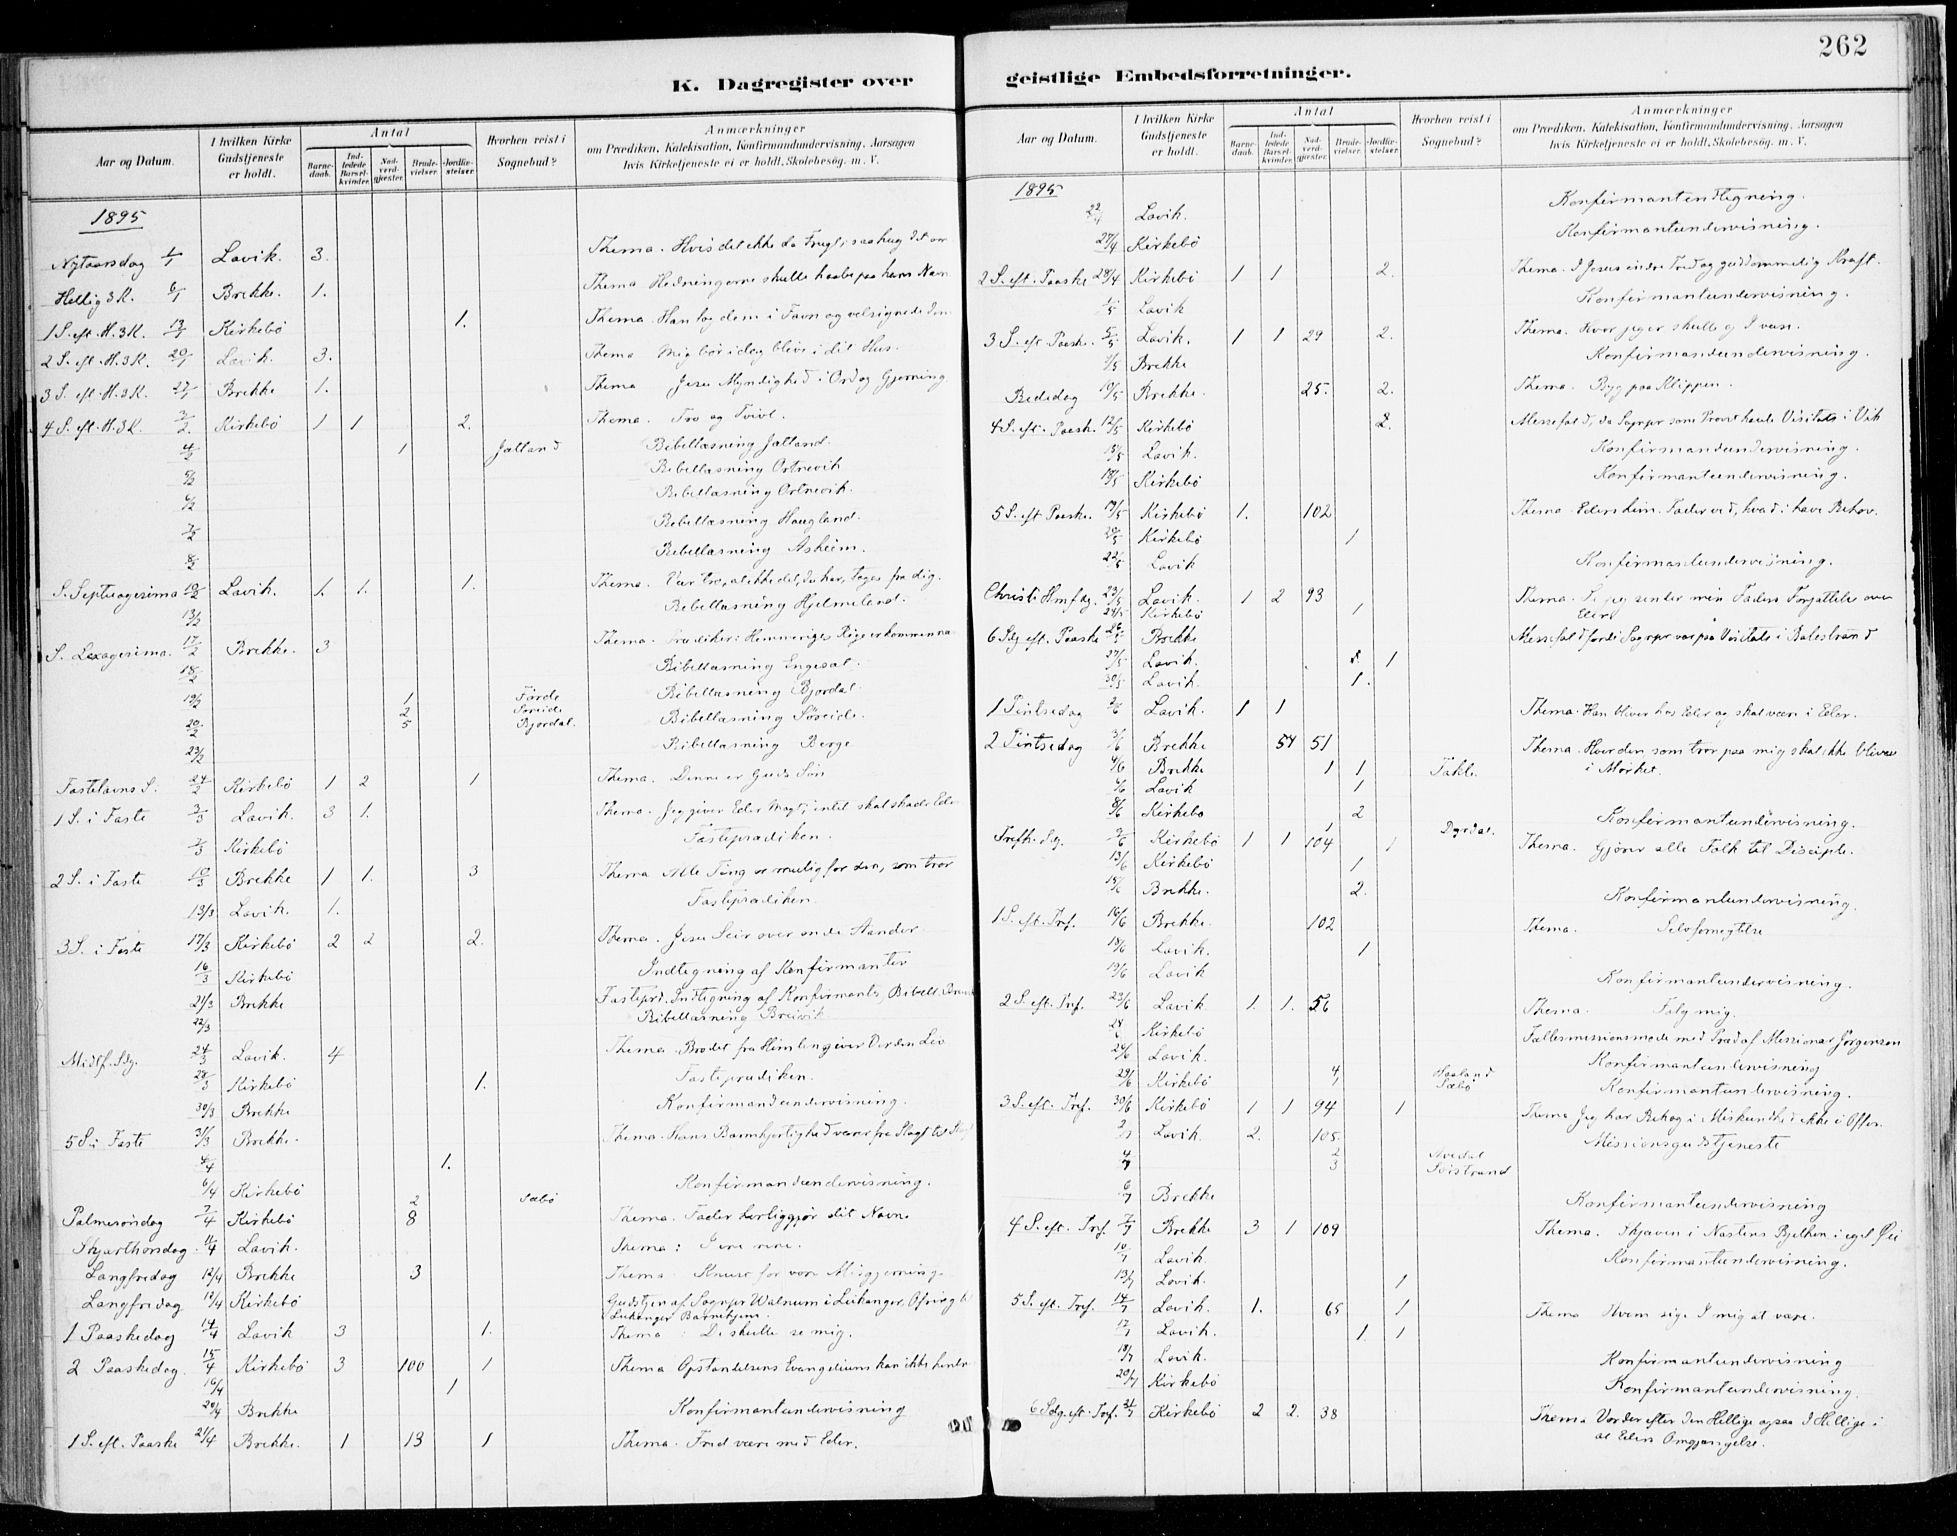 262
K. Dagregister over
Aar og Datum. | I hvilken Kirke Gudstjeneste er holdt. | Antal | Barnedaab. | Indledede Barselkvinder. | Nadverdgjester. | Brudevielser. | Jordfæstelser. | Hvorhen reist i Sognebud? | Anmærkninger om Prædiken, Katekisation, Konfirmandundervisning, Aarsagen hvis Kirketjeneste ei er holdt, Skolebesøg. m. V.
1895
Nytaarsdag 1/1 Lavik. 3. Thema. Hvis det ikke da Frugt, saa hug det om
Hellig 3 K. 6/1 Brekke. 1. Thema Hedningerne skulle haabe paa hans Navn
1 S. eft. H. 3 K. 13/1 Kirkebö 1. Thema. Han tog dem i Favn og velsignede dem
2 S. eft. H. 3 K. 20/1 Lavik. 3. Thema Mig bør idag blive i dit Hus.
3 S. eft. H. 3 K. 27/1 Brekke 1. Thema Jesu Myndighed i Ord og Gjerning
4 S. eft. H. 3 K. 3/2. Kirkebö 1 1 2. Thema. Tro og Tvivl.
4/2 1 Jalland Bibellæsning Jalland.
5/2 Bibellæsning Ortnevik
6/2 Bibellæsning Ortnevik.
7/2 Bibellæsning Haugland.
8/2 Bibellæsning Asheim.
S. Septuagesima 10/2 Lavik. 1. 1. 1. Thema. Vær tro, at ikke det, du har, tages fra dig.
13/2 Bibellæsning Hjelmeland.
S. Sexagesima. 17/2 Brekke. 3 Thema. Prædiker: Himmeriges Rige er kommen nær
18/2 Bibellæsning Engesæt.
19/2 1 Førde Bibellæsning Bjordal.
20/2 2 Søreide Bibellæsning Søreide.
5 Bjordal.
23/2 Bibellæsning Berge
Fastelavns S. 24/2 Kirkebö 1 2 1 Thema. Denne er Guds Søn
1 S. i Faste 3/3 Lavik. 3 1. Thema. Jeg giver Eder Magt; intet skal skade Eder
7/3 Kirkebö Fasteprædiken.
2 S. i Faste 10/3 Brekke 1 1. 3 Thema Alle Ting er mulig for den, som tror
13/3 Lavik. 1. Fasteprædiken.
3 S. i Faste 17/3 Kirkebö 2 2 2. Thema. Jesu Seir over onde Aander.
16/3 Kirkebö Indtegning af Konfirmanter
21/3 Brekke Fastepr. Indtegning af Konfirmanter, Bibell.
22/3 Bibellæsning Breivik.
Midtf. Sdg. 24/3 Lavik. 4 Thema. Brødet fra Himlen giver Verden Liv
28/3 Kirkebö 1. Fasteprædiken.
30/3 Brekke Konfirmandundervisning.
5 S. i Faste 31/3 Brekke. Thema. Hans Barmhjertighed varer fra Slægt til Slægt
4/4 1.
6/4 Kirkebö 2 Sæbø Konfirmandundervisning.
Palmesøndag 7/4 Kirkebö 8 Thema. Fader herliggjør dit Navn
Skjærthorsdag. 11/4 Lavik. Thema: I ere rene.
Langfredag 12/4 Brekke 3 Thema. Knust for vore Misgjerninger
Langfredag 12/4 Kirkebö Gudstjen. af Sognepr Walnum i Leikanger, Ofring til
Leikanger Barnehjem.
1 Paaskedag 14/4 Lavik 3 1. Thema: De skulle se mig.
2 Paaskedag. 15/4 Kirkebö 3 100 1 Thema Opstandelsens Evangelium kan ikke hindres
16/4 1
20/4 Brekke Konfirmantundervisning
1 S. eft. Paaske 21/4 Brekke. 1 13 1 Thema. Fred være med Eder.
geistlige Embedsforretninger.
Aar og Datum. | I hvilken Kirke Gudstjeneste er holdt. | Antal | Barnedaab. | Indledede Barselkvinder. | Nadverdgjester. | Brudevielser. | Jordfæstelser. | Hvorhen reist i Sognebud? | Anmærkninger om Prædiken, Katekisation, Konfirmandundervisning, Aarsagen hvis Kirketjeneste ei er holdt, Skolebesög. m. V.
1895
22/4 Lavik. Konfirmantindtegning.
27/4 Kirkebö Konfirmantundervisning.
2 S. eft. Paaske 28/4 Kirkebö 1 1 2. Thema. I Jesus endre Fred og guddommelig Kraft.
1/5 Lavik Konfirmantundervisning.
3 S. eft. Paaske. 5/5 Lavik. 1 1 29 2. Thema. Hvor jeg er skulle og I være.
9/5 Brekke Konfirmandundervisning.
Bededag 10/5 Brekke. 25. 2. Thema. Byg paa Klippen.
4 S. eft. Paask. 12/5 Kirkebö 2. Messefald, da Sognepr som Provst havde Visitats i Vik
15/5 Lavik. Konfirmandundervisning.
18/5 Kirkebö Konfirmantundervisning.
5 S. eft Paaske. 19/5 Kirkebö 1. 102 Thema. Eders him. Fader ved, hvad i have Behov.
20/5 Kirkebö 1
22/5 Lavik Konfirmantundervisning.
Christi Hmfdg. 23/5 Lavik. 1 2 93 Thema. Se jeg sender min Faders Forjættelse over
24/5 Kirkebö 1 Eder
6 Sdg eft. Paaske 26/5 Brekke Messefald fordi Sognepr var paa Visitats i Balestrand
27/5 Lavik. 1
30/5 Lavik. 1.
1 Pintsedag 2/6 Lavik. 1 1 Thema. Han bliver hos Eder og skal være i Eder.
2 Pintsedag 3/6 Brekke 54 51 Thema. Hver den som tror paa mig skal ikke blive
4/6 Brekke 1 1 Takle. i Mørket.
6/6 Lavik 1
8/6 Kirkebö 2 Konfirmantundervisning.
Trefh. Sdg. 9/6 Kirkebö 1 1 104 1 Dyrdal. Thema. Gjører alle Folk til Disciple.
13/6 Kirkebö 1
15/6 Brekke. 2. Konfirmantundervisning.
1 S. eft. Tref. 16/6 Brekke. 102 Thema. Selvfornegtelse
18/6 Lavik. 1
19/6 Lavik Konfirmantundervisning.
2 S. eft. Tref. 23/6 Lavik 1. 1. 56 Thema. Følg mig.
24/6 Kirkebö Fællesmissionsmøde med Præd af Missionær Jørgensen
26/6 Lavik. Konfirmantundervisning
29/6 Kirkebö 4 1 Haaland Sæbø Konfirmantundervisning.
3 S. eft. Tref. 30/6 Kirkebö 1 1 94 1 Thema Jeg har Behag i Miskundhed ikke i Offer.
2/7 Lavik. 2. 105. Missionsgudstjeneste
4/7 2 3 Avedal Söistrand
6/7 Brekke Konfirmantundervisning
4 S. eft. Tref. 7/7 Brekke 3 1 109 Thema. Skjæven i Næstens Bjelken i eget Øie
10/7 Lavik. Konfirmantundervisning.
13/7 Lavik. 1
5 S. eft. Tref. 14/7 Lavik. 1. 65 1 Thema Hvem sige I mig at være.
17/7 Lavik. 1 1
18/7 Lavik. Konfirmantundervisning
20/7 Kirkebö Konfirmantundervisning.
6 Sdg. eft. Tref. 21/7 Kirkebö 2 2. 38 Thema Vorder efter den Hellige ogsaa I Hellige i
al Eders Omgjængelse.